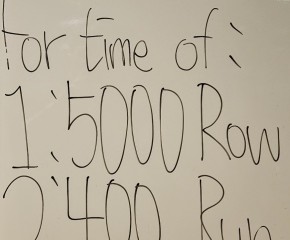 for time of:
1:5000 Row
2:400 Run